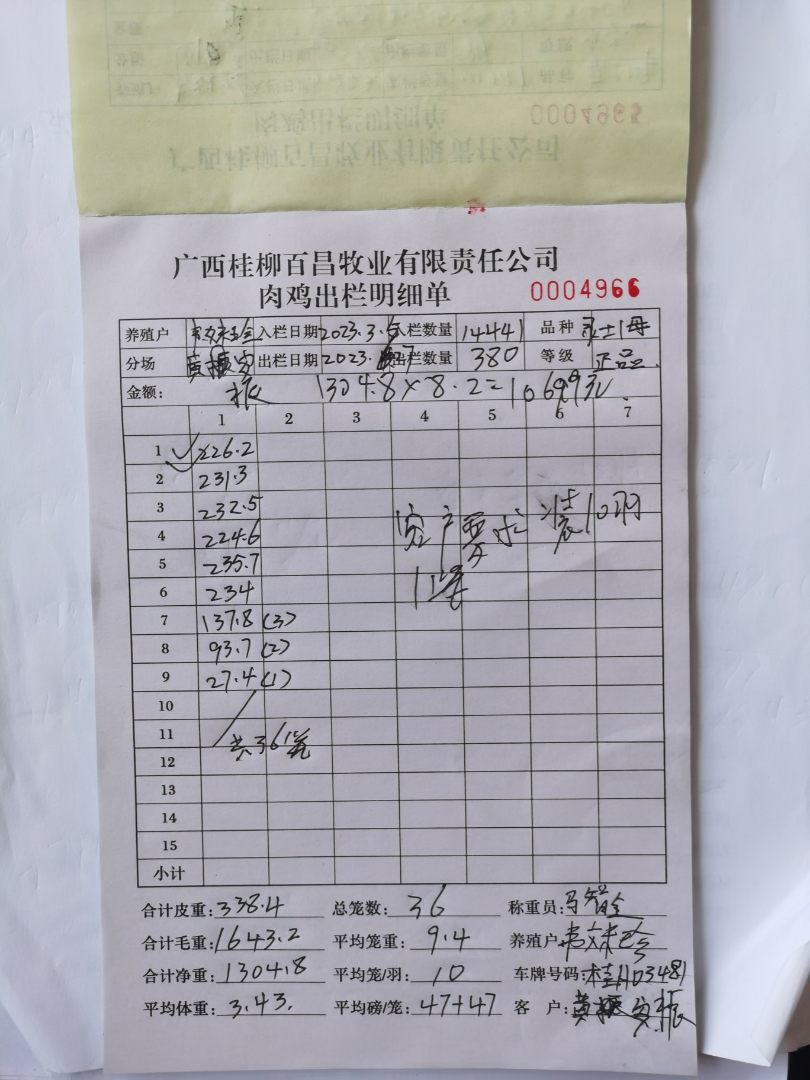 0004965
广西桂柳百昌牧业有限责任公司
肉鸡出栏明细单 0004966
养殖户 入栏日期 2023.3.5 入栏数量 14441 品种 灵士1母
分场 出栏日期 2023. 出栏数量 380 等级 正品
金额: 1304.8×8.2=10699元
1 2 3 4 5 6 7
1 226.2
2 231.3
3 232.5
4 224.6 客户要求装10羽
5 235.7 1笼
6 234
7 137.8 (3)
8 93.7 (2)
9 27.4 (1)
10
11 共36笼
12
13
14
15
小计
合计皮重: 338.4 总笼数: 36 称重员:
合计毛重: 1643.2 平均笼重: 9.4 养殖户
合计净重: 1304.8 平均笼/羽: 10 车牌号码: 桂H03481
平均体重: 3.43. 平均磅/笼: 47+47 客 户: